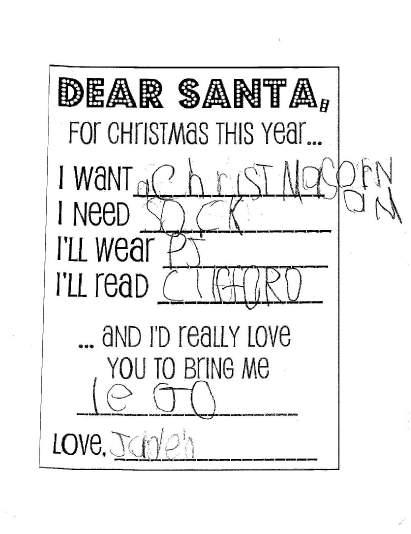 DEAR SANTA,
FOR CHRISTMAS THIS YEAR...
I WANT a ChrisTMasOrN
I NEED SOCK
I'LL WEAR PJ
I'LL READ CliFFORD
... AND I'D REALLY LOVE
YOU TO BRING ME
le GO
LOVE,